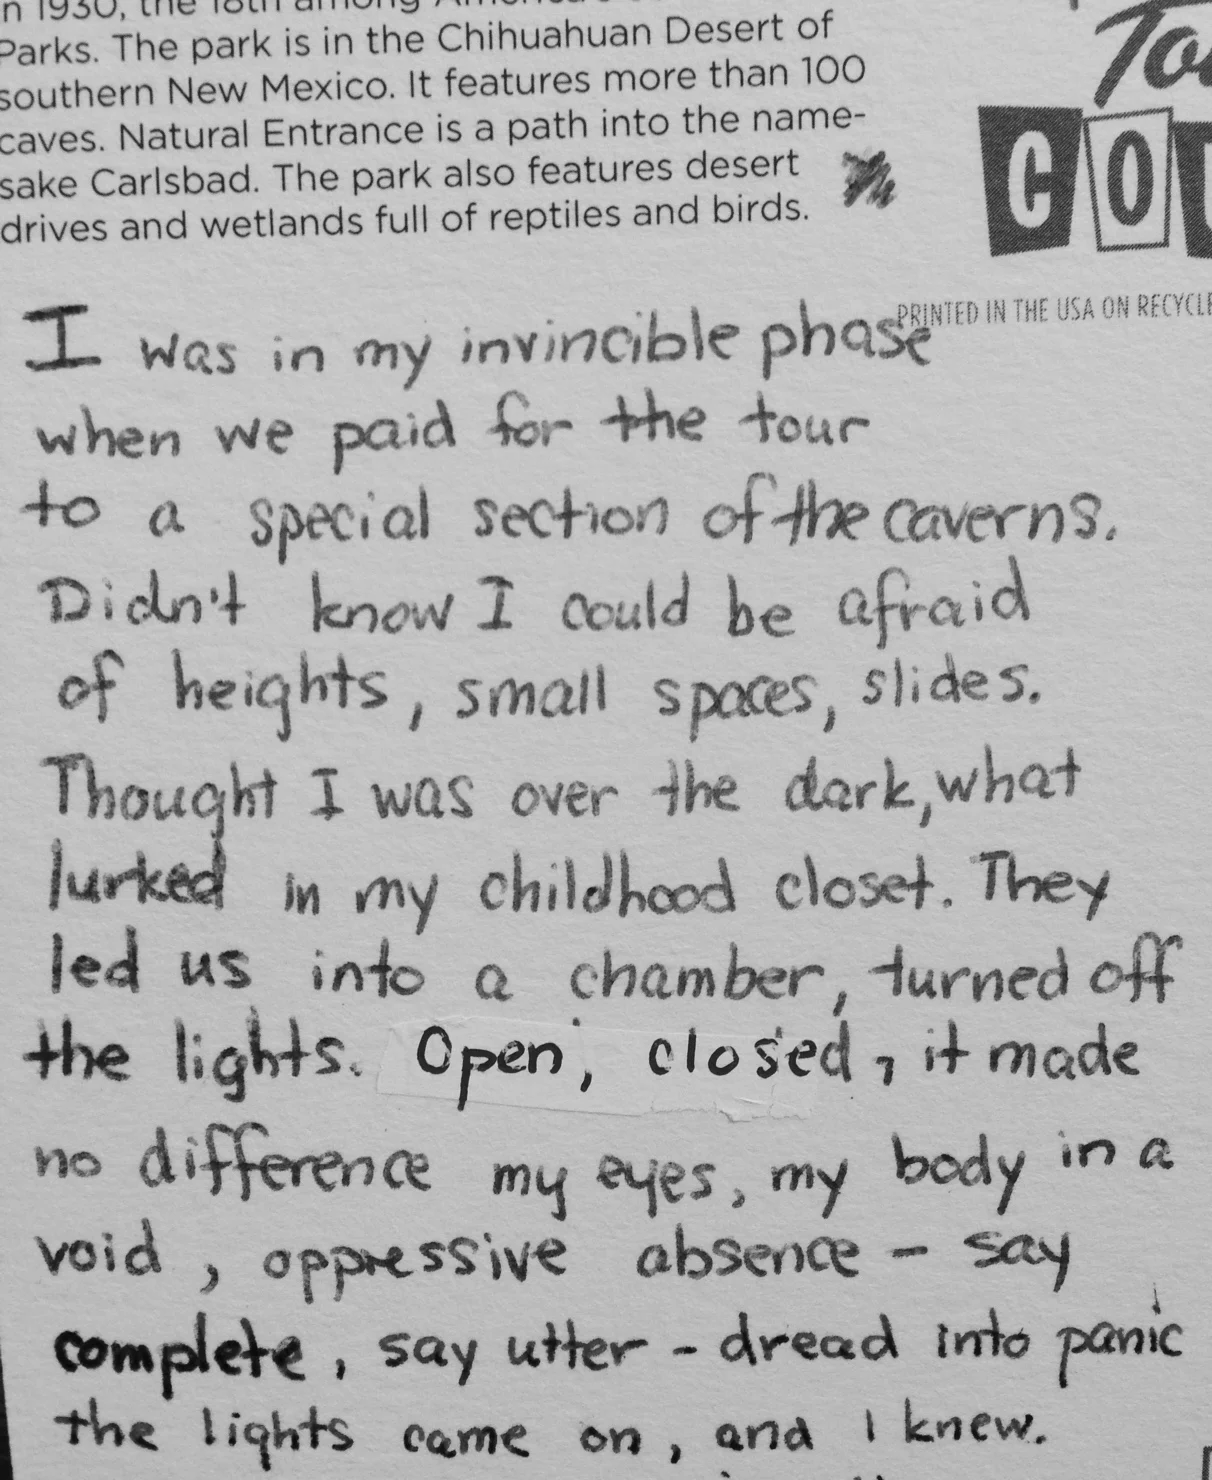 in 1930, the 18th among America's
Parks. The park is in the Chihuahuan Desert of
southern New Mexico. It features more than 100
caves. Natural Entrance is a path into the name-
sake Carlsbad. The park also features desert
drives and wetlands full of reptiles and birds.
PRINTED IN THE USA ON RECYCLE
I was in my invincible phase
when we paid for the tour
to a special section of the caverns.
Didn't know I could be afraid
of heights, small spaces, slides.
Thought I was over the dark, what
lurked in my childhood closet. They
led us into a chamber, turned off
the lights. Open, closed, it made
no difference my eyes, my body in a
void, oppressive absence - say
complete, say utter - dread into panic
the lights came on, and I knew.